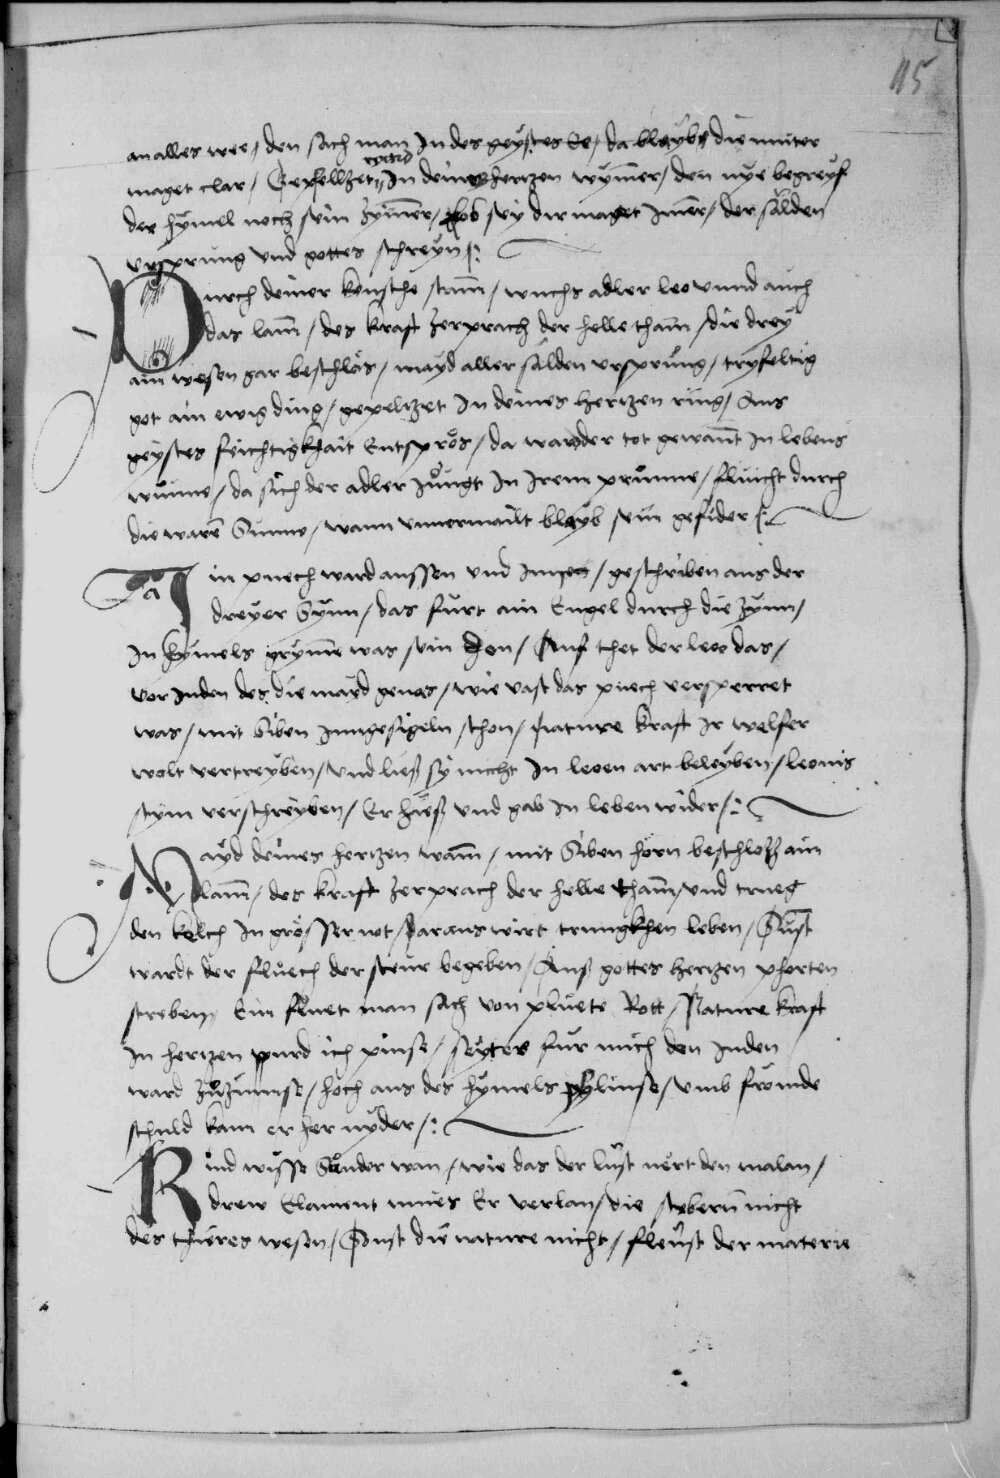 115
an alles wee / den sach man In des geystes Ee / da bleybt die muter
ward
maget clar / Gepellzet In deines hertzen wymer / den nye begreyf
der hymel noch sein zymer / Lob sey dir maget Imer / der sälden
vrsprung vnd gottes schreyn /:
Durch deiner keusche stam̄ / wuchs adler leo vnnd auch
das lam̄ / des kraft zerprach der helle tham̄ / die drey
ain wesen gar beschlos / mayd aller sälden vrsprung / tryfeltig
got ain ewig ding / gepeltzet In deines hertzen ring / Aus
geystes feichtigkhait Entspros / da ward der tot gewant In lebens
wunne / da sich der adler Jungt In Irem prunne / fleucht durch
die waren Sunne / wann vnuermailt bleyb sein gefider /:
Ain puech ward aussen vnd Innen / geschriben aus der
dreyer Synn / das furt ain Engel durch die zynn /
In hymels grym̄e was sein don / Auf thet der leo das /
vor Juden des die mayd genas / wie vast das puech versperret
was / mit Siben Inngesigeln schon / Nature kraft Ir welfer
wolt vertreyben / vnd ließ sy nicht In leoen art beleyben / leonis
stym verschreyben / Er hieß vnd gab In leben wider /:
Mayd deines hertzen wam̄ / mit Siben horn beschlosz ain
lam̄ / des kraft zerprach der helle tham̄ / vnd trueg
den kelch In grosser not / daraus wirt trungkhen leben / Sust
wardt der fluech der steur begeben / Auß gottes hertzen pforten
streben / Ein fluet man sach von pluete Rott / Nature kraft
In hertzen purd ich pinse / seyter fur mich den Juden
ward zu zinnse / hoch aus des hymels / vmb fromde
schuld kam er her nyder /:
Kind wysse Sunder wan / wie das der lust nert den malan /
drew Element mues Er verlan / die nicht
des thieres wesen / Sonst die nature nicht / fleust der materie